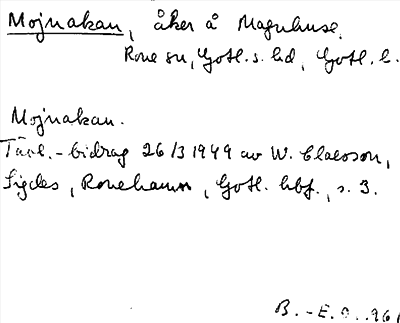 Mojnakan, åker å Magnhuse.
Rone sn, Gotl. s. hd, Gotl. l.
Mojnakan.
Tävl.-bidrag 26/3 1949 av W. Claeson,
Sigdes, Ronehamn, Gotl. hbf., s. 3.
B.-E.O. 196